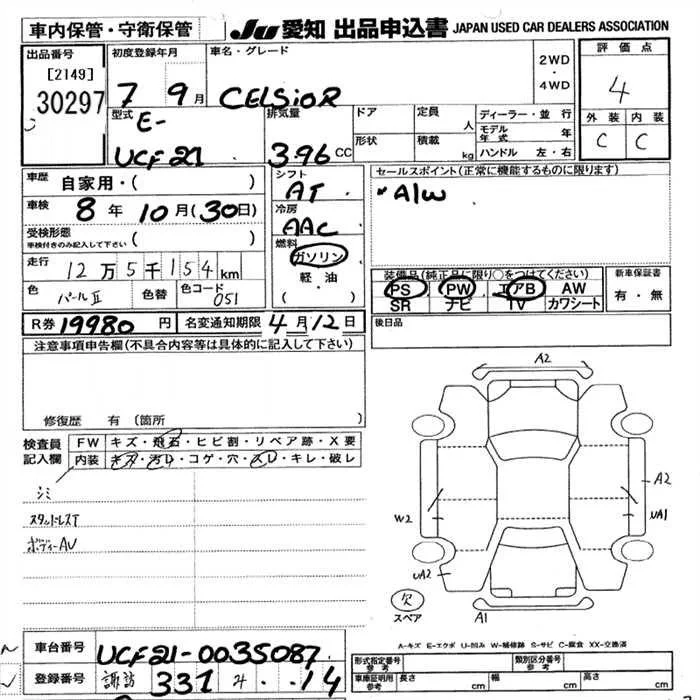 車内保管・守衛保管
JU 愛知 出品申込書 JAPAN USED CAR DEALERS ASSOCIATION
出品番号
[2149]
30297
初度登録年月
7 9月
車名・グレード
CELSiOR
2WD
・
4WD
評価点
4
外装 内装
C C
型式
E-
UCF21
排気量
3.96 CC
ドア
形状
定員 人
積載 kg
ディーラー・並行
モデル年式 年
ハンドル 左・右
車歴 自家用・( )
車検 8年 10月(30日)
受検形態
車検付きのみ記入して下さい ( )
走行 12万5千154km
色 パールⅡ 色替 色コード 051
シフト
AT
冷房
AAC
燃料
ガソリン
軽・油
( )
セールスポイント(正常に機能するものに限ります)
A/W
装備品(純正品に限り○をつけてください)
PS PW エアB AW
SR ナビ TV カワシート
新車保証書
有・無
後日品
R券 19980円 名変通知期限 4月12日
注意事項申告欄(不具合内容等は具体的に記入して下さい)
修復歴 有(箇所 )
検査員
記入欄
FW キズ・飛石・ヒビ割・リペア跡・X要
内装 キズ・汚レ・コゲ・穴・スレ・キレ・破レ
シミ
スタッドレスT
ボディーAU
A2
A2
UA1
W2
UA2
A1
欠
スペア
A-キズ E-エクボ U-凹み W-補修跡 S-サビ C-腐食 XX-交換済
車台番号 UCF21-0035087
登録番号 諏訪 331 ・・14
形式指定番号
参考
類別区分番号
参考
車庫証明用
参考
長さ cm
幅 cm
高さ cm